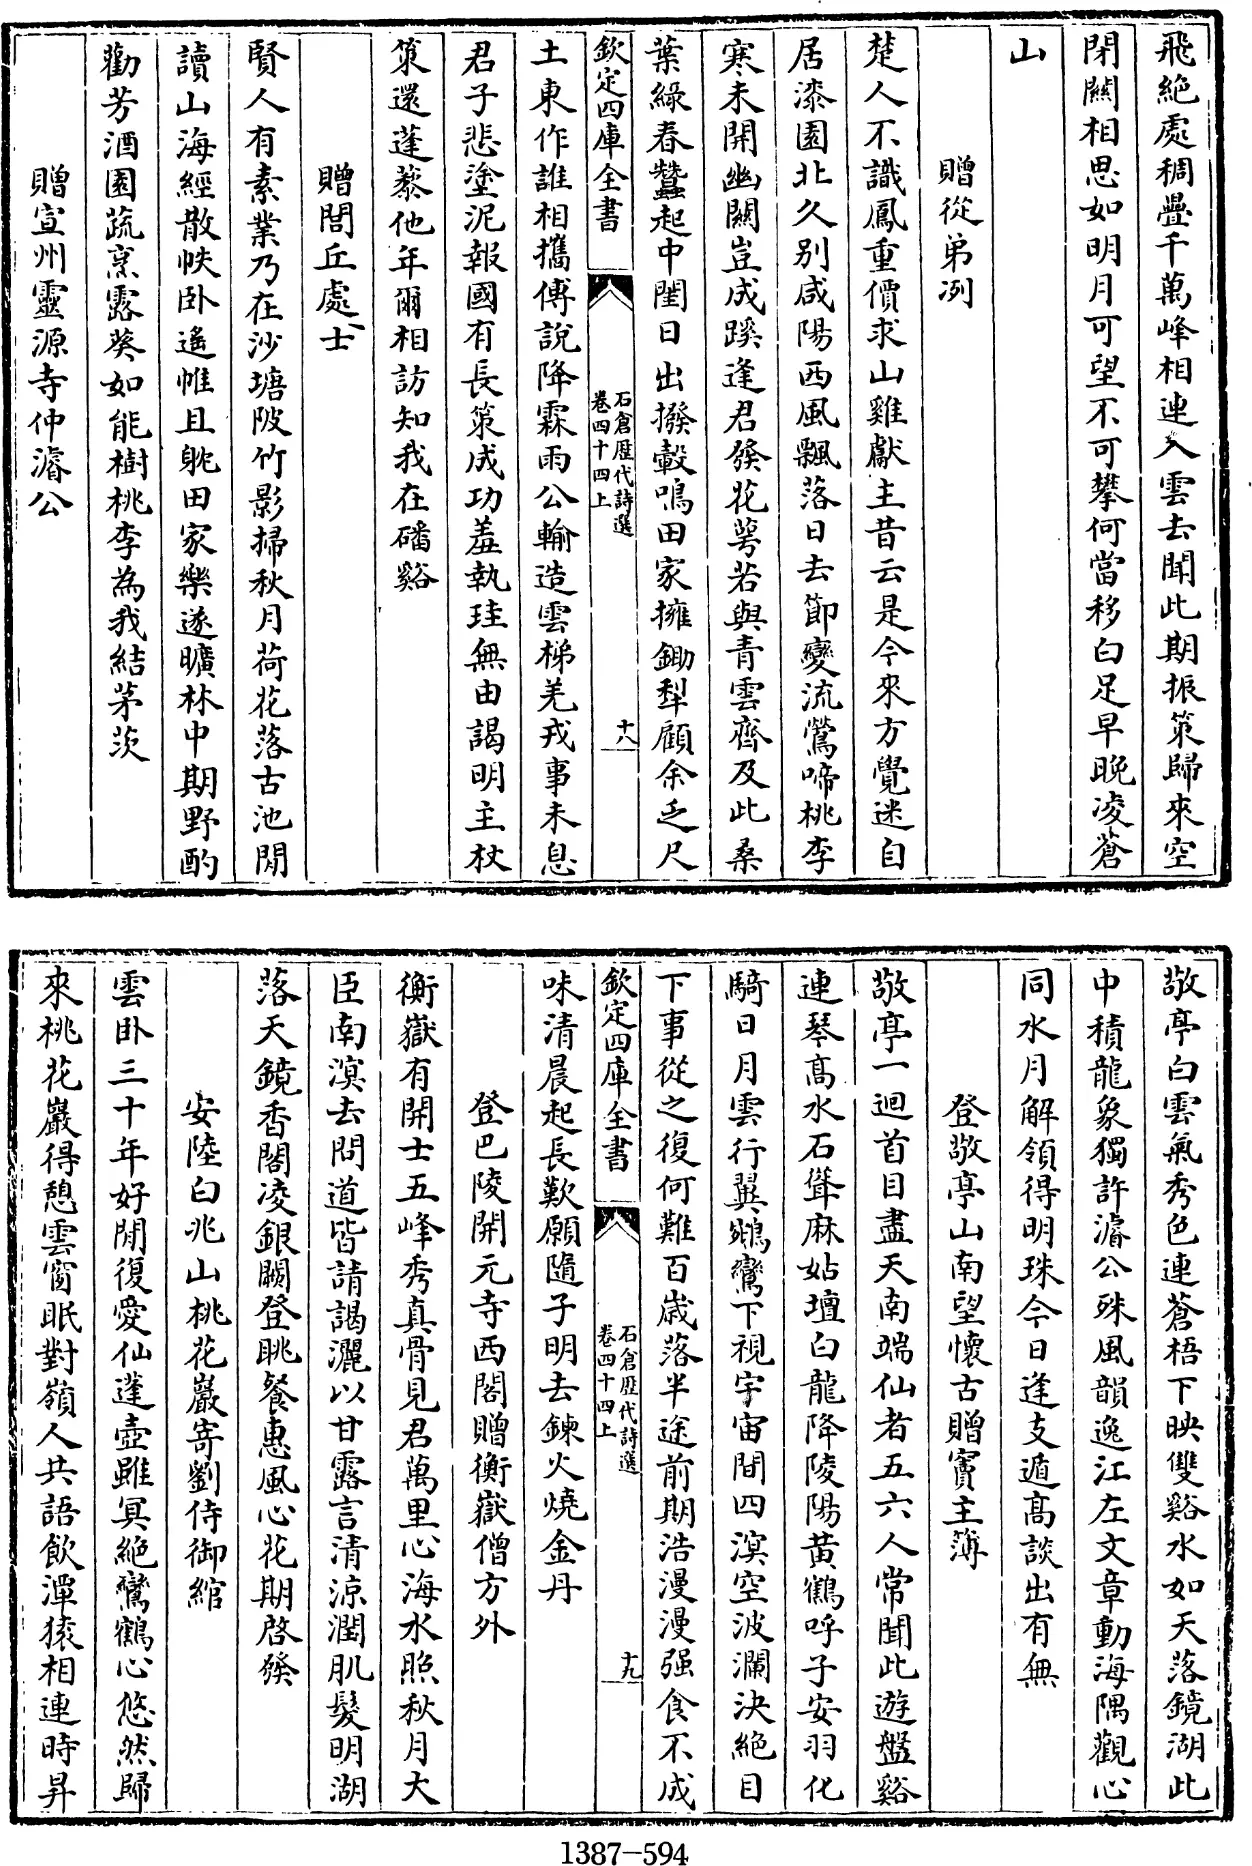 飛絶處稠疊千萬峰相連入雲去聞此期振策歸來空
閉關相思如明月可望不可攀何當移白足早晚凌蒼
山
贈從弟冽
楚人不識鳳重價求山雞獻主昔云是今來方覺迷自
居漆園北久别咸陽西風飄落日去節變流鶯啼桃李
寒未開幽關豈成蹊逢君發花萼若與青雲齊及此桑
葉綠春蠶起中閨日出撥穀鳴田家擁鋤犁顧余乏尺
欽定四庫全書
石倉歷代詩選
卷四十四上
十八
土東作誰相攜傅說降霖雨公輸造雲梯羌戎事未息
君子悲塗泥報國有長策成功羞執珪無由謁明主杖
策還蓬藜他年爾相訪知我在磻谿
贈閭丘處士
賢人有素業乃在沙塘陂竹影掃秋月荷花落古池閒
讀山海經散帙卧遙帷且躭田家樂遂曠林中期野酌
勸芳酒園蔬烹露葵如能樹桃李為我結茅茨
贈宣州靈源寺仲濬公
敬亭白雲氣秀色連蒼梧下映雙谿水如天落鏡湖此
中積龍象獨許濬公殊風韻逸江左文章動海隅觀心
同水月解領得明珠今日逢支遁高談出有無
登敬亭山南望懷古贈竇主簿
敬亭一迴首目盡天南端仙者五六人常聞此遊盤谿
連琴高水石聳麻姑壇白龍降陵陽黃鶴呼子安羽化
騎日月雲行翼鵷鸞下視宇宙間四溟空波瀾決絶目
下事從之復何難百歲落半途前期浩漫漫强食不成
欽定四庫全書
石倉歷代詩選
卷四十四上
十九
味清晨起長歎願隨子明去鍊火燒金丹
登巴陵開元寺西閣贈衡嶽僧方外
衡嶽有開士五峰秀真骨見君萬里心海水照秋月大
臣南溟去問道皆請謁灑以甘露言清涼潤肌髮明湖
落天鏡香閣凌銀闕登眺餐惠風心花期啓發
安陸白兆山桃花巖寄劉侍御綰
雲卧三十年好閒復愛仙蓬壺雖冥絶鸞鶴心悠然歸
來桃花巖得憩雲窗眠對嶺人共語飲潭猿相連時昇
1387-594